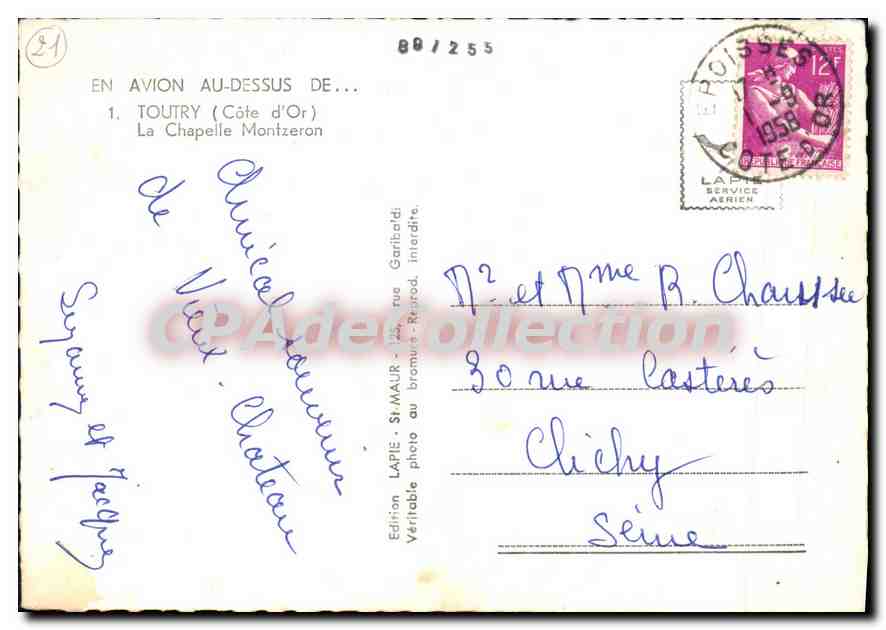 21
89/255
EN AVION AU-DESSUS DE...
1. TOUTRY (Côte d'Or)
La Chapelle Montzeron
Amical souvenir
de Vieux-Chateau
Suzanne et Jacques
Edition LAPIE - St-MAUR - 125, rue Garibaldi
Véritable photo au bromure - Reprod. interdite.
EPOISSES
1-9
1958
COTE-D'OR
12F
POSTES
REPUBLIQUE FRANCAISE
LAPIE
SERVICE
AERIEN
Mr et Mme R. Chaussée
30 rue Castérès
Clichy
Seine
CPAdeCollection